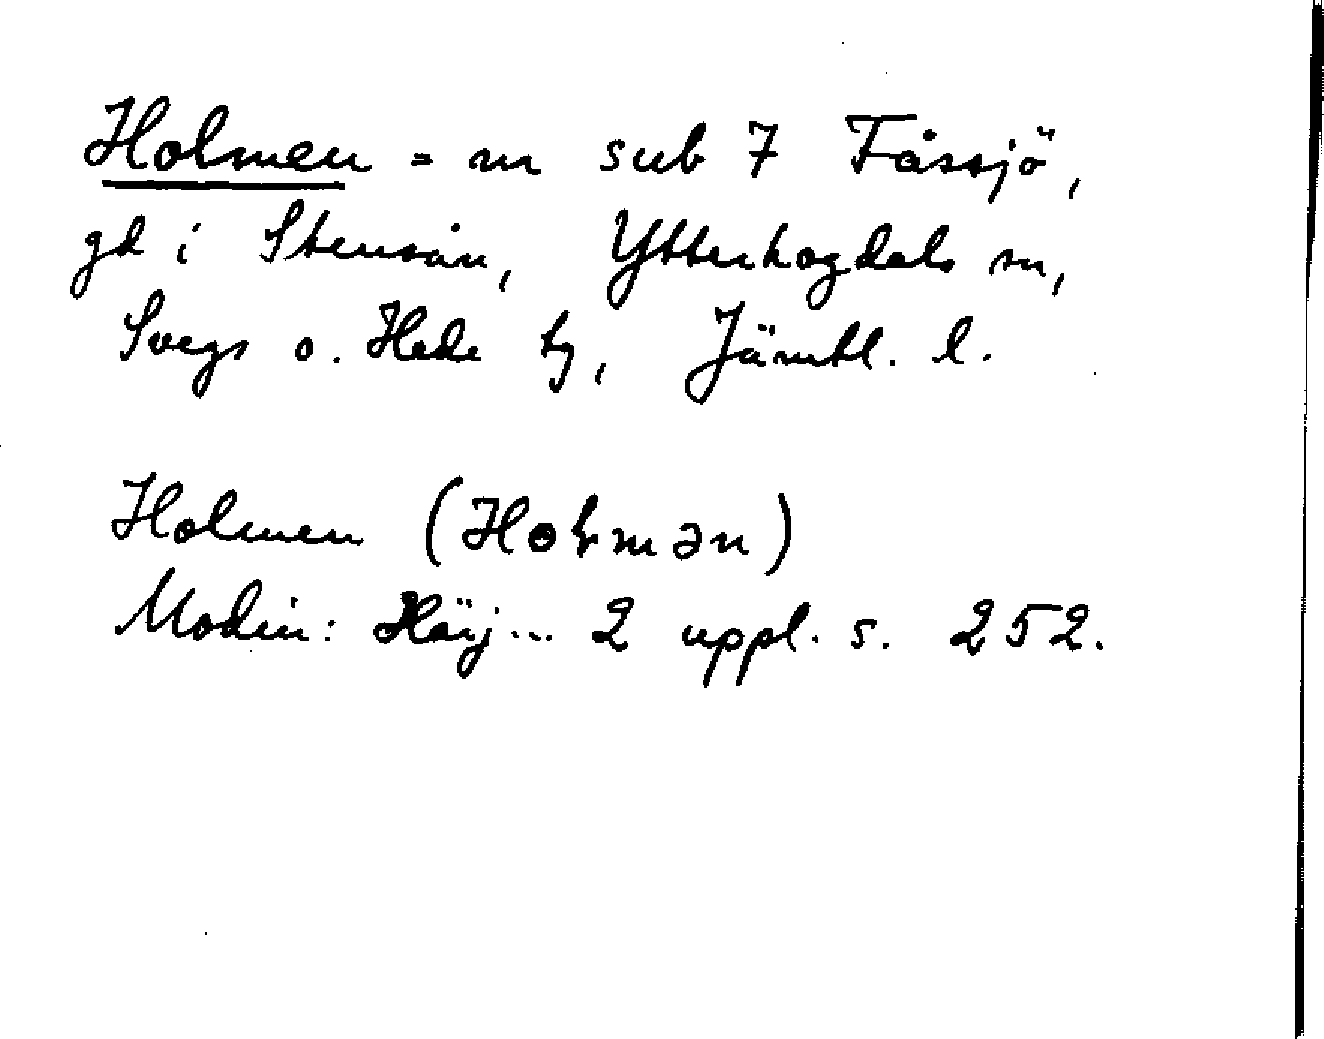 Holmen = m sub 7 Fåssjö,
gd i Stensån, Ytterhogdals sn,
Svegs o. Hede tg, Jämtl. l.
Holmen (Hoƚmən)
Modin: Härj... 2 uppl. s. 252.